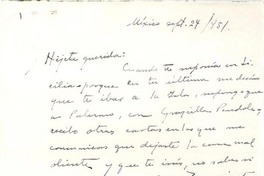 México sept. 24/951.
Hijita querida:
Cuando te suponía en Si-
cilia porque en tu última me decías
que te ibas a la Isla, supongo que
a Palermo, con Graziella Pendola,
recibo otras cartas en las que me
comunicas que dejaste la cama mal
oliente y que te irás, no sabes si